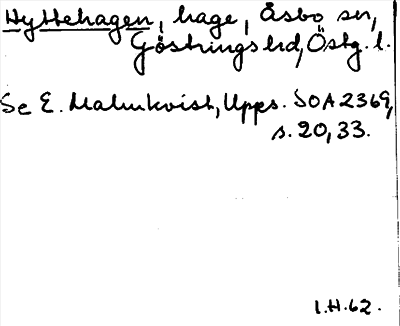 Hyttehagen, hage, Åsbo sn,
Göstrings hd, Östg. l.
Se E. Malmkvist, Upps. SOA 2369,
s. 20, 33.
I.H.62.